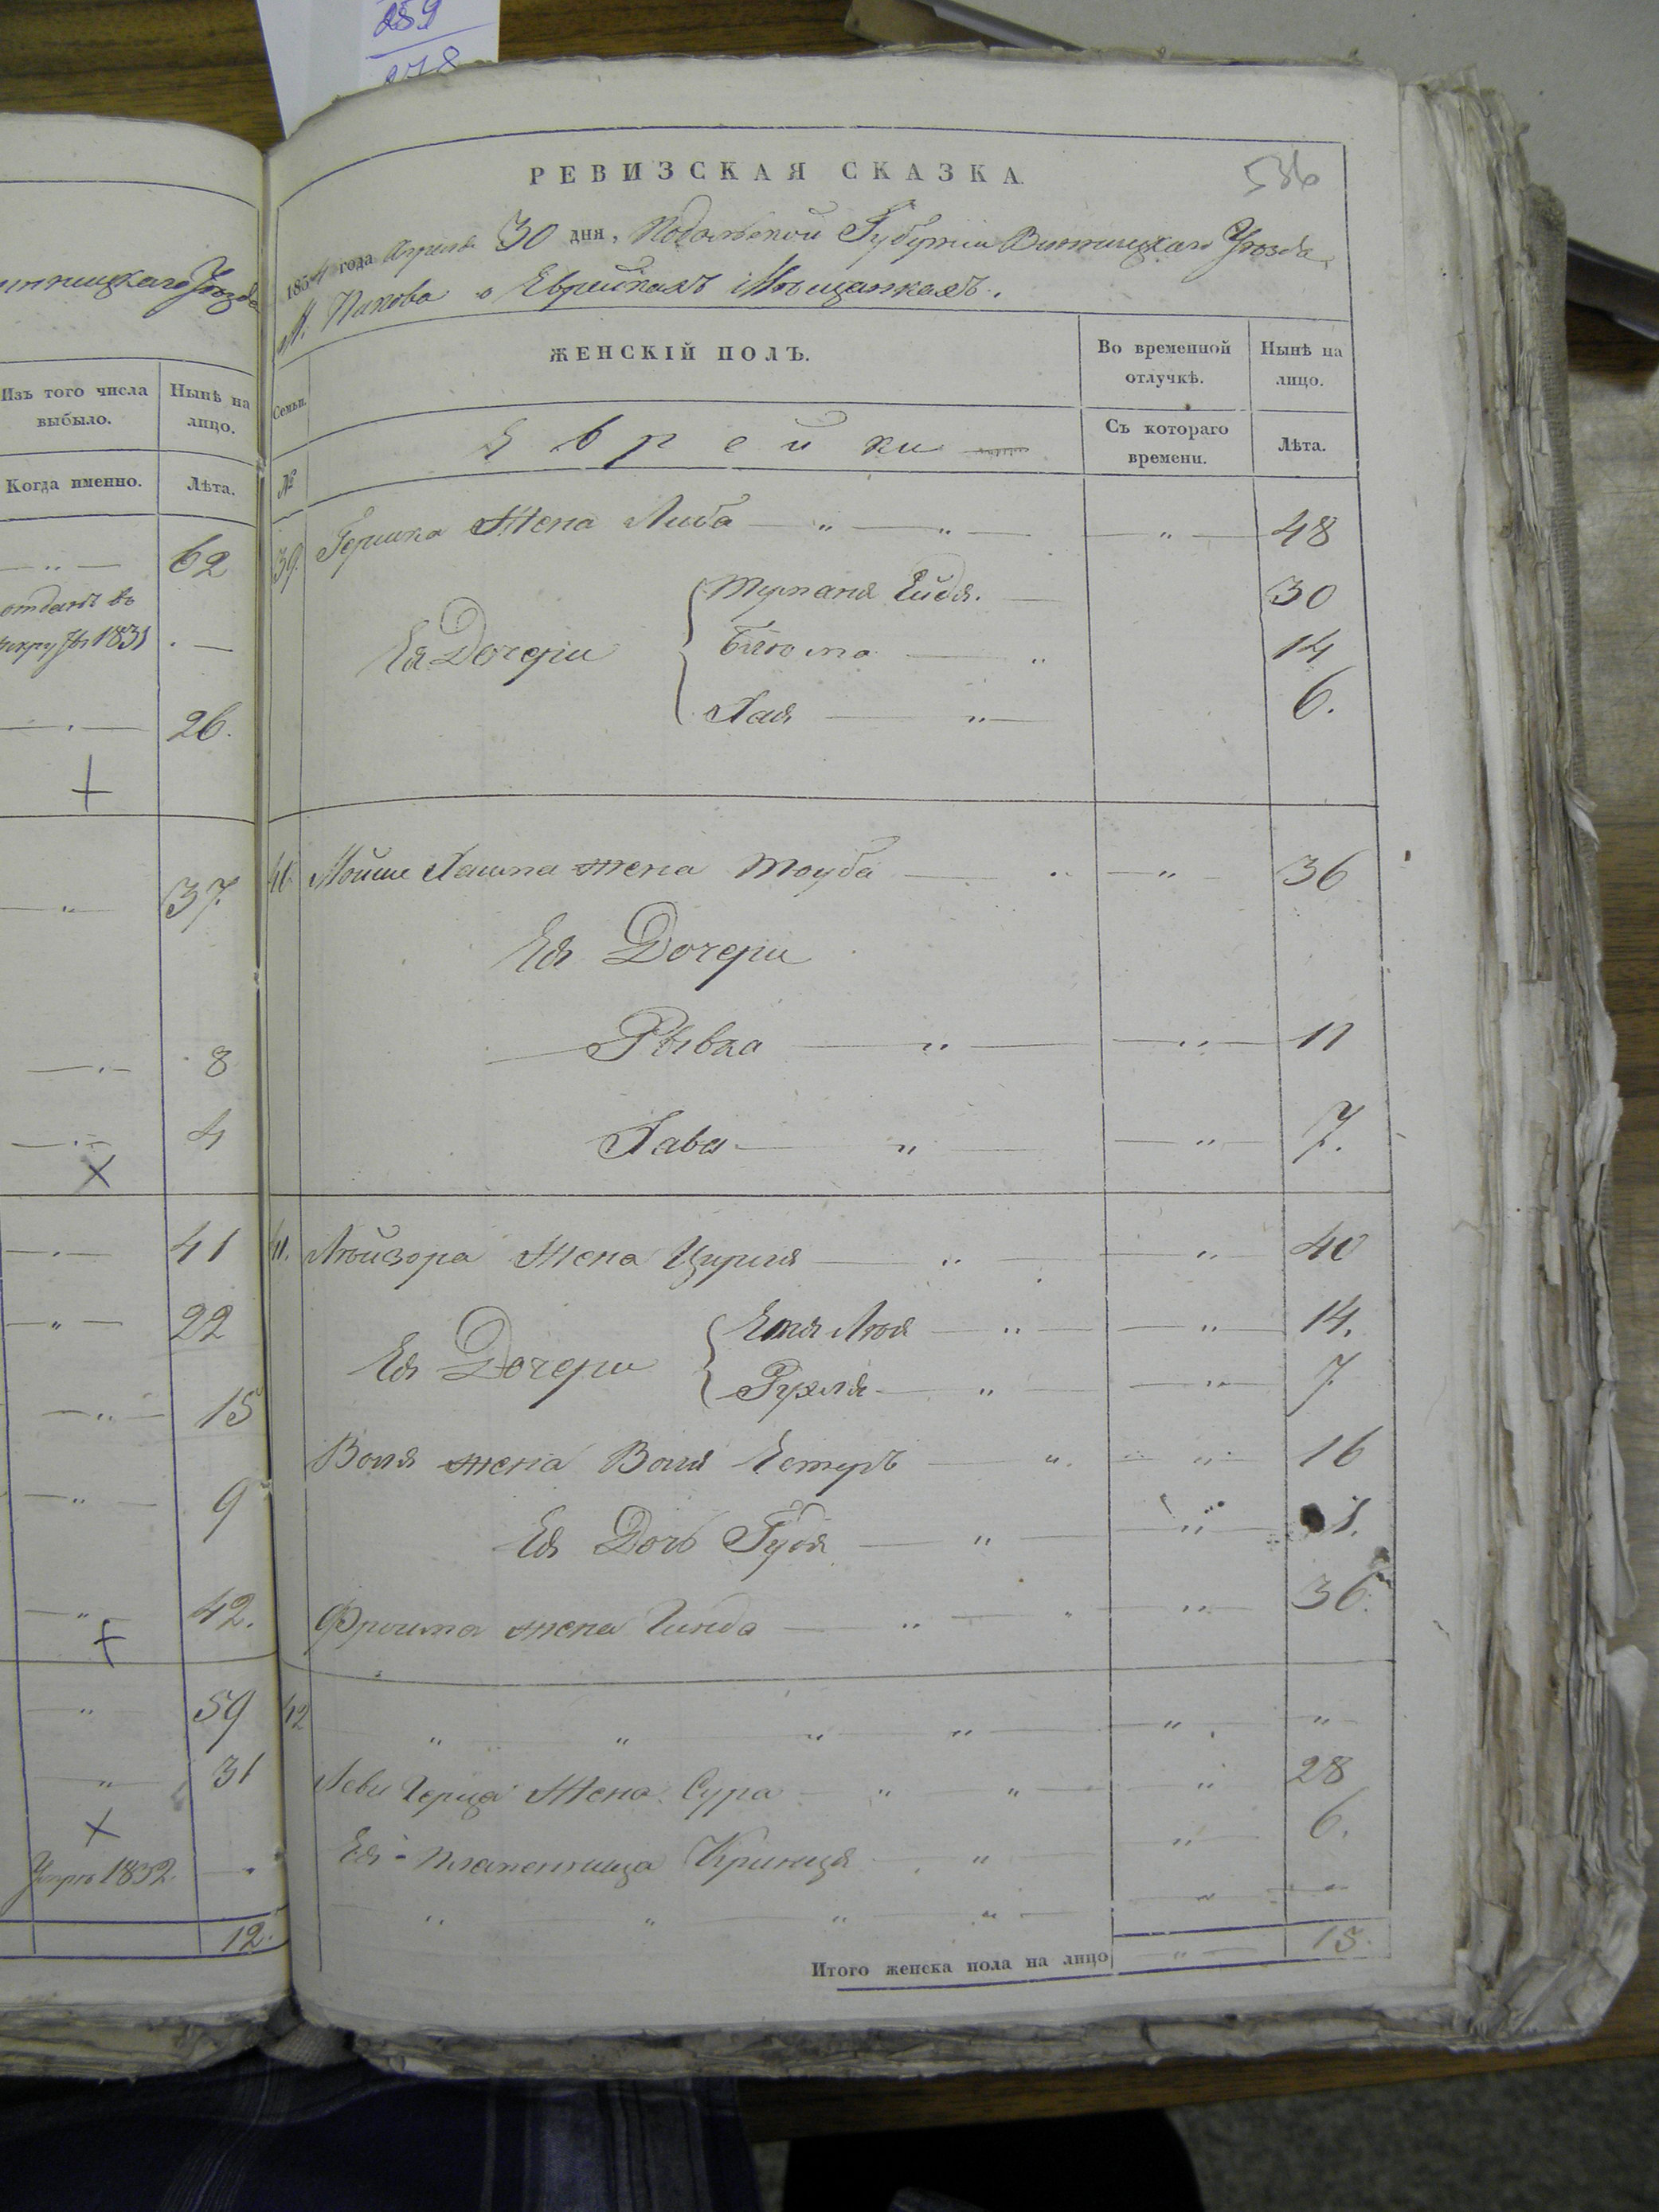 259
278
Уѣзда
Изъ того числа
выбыло.
Ныпѣ на
лицо.
Когда именно.
Лѣта.
62
отданъ въ
1831
26.
37.
8
4
41
22
15
9
42.
59
31
1852.
12.
РЕВИЗСКАЯ СКАЗКА.
586
1854 года Апрѣля 30 дня, Подольской Губерніи Винницкаго Уѣзда,
М. Пикова о Еврейкахъ Мѣщанкахъ.
Семьи.
ЖЕНСКІЙ ПОЛЪ.
Во временной
отлучкѣ.
Нынѣ на
лицо.
№
Еврейки
Съ котораго
времени.
Лѣта.
39. Гершка Жена Либа 48
Ея Дочери
Ейдя. 30
Блюма 14
Хая 6.
Мойше Жена Тоуба 36
Ея Дочери
Рывка 11
Хава 7.
41. Лейзора Жена Цирля 40
Ея Дочери
Лея 14.
Рухля 7
Воля жена Естеръ 16
Ея Дочь Гудя 1.
Фроима жена Гинда 36.
42
Леви Герца Жена Сура 28
Ея племенница Криниця 6.
Итого женска пола на лицо 15.